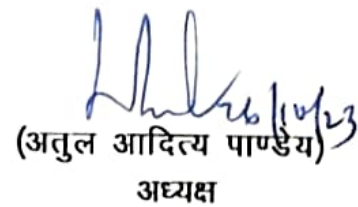 26/10/23
(अतुल आदित्य पाण्डेय)
अध्यक्ष